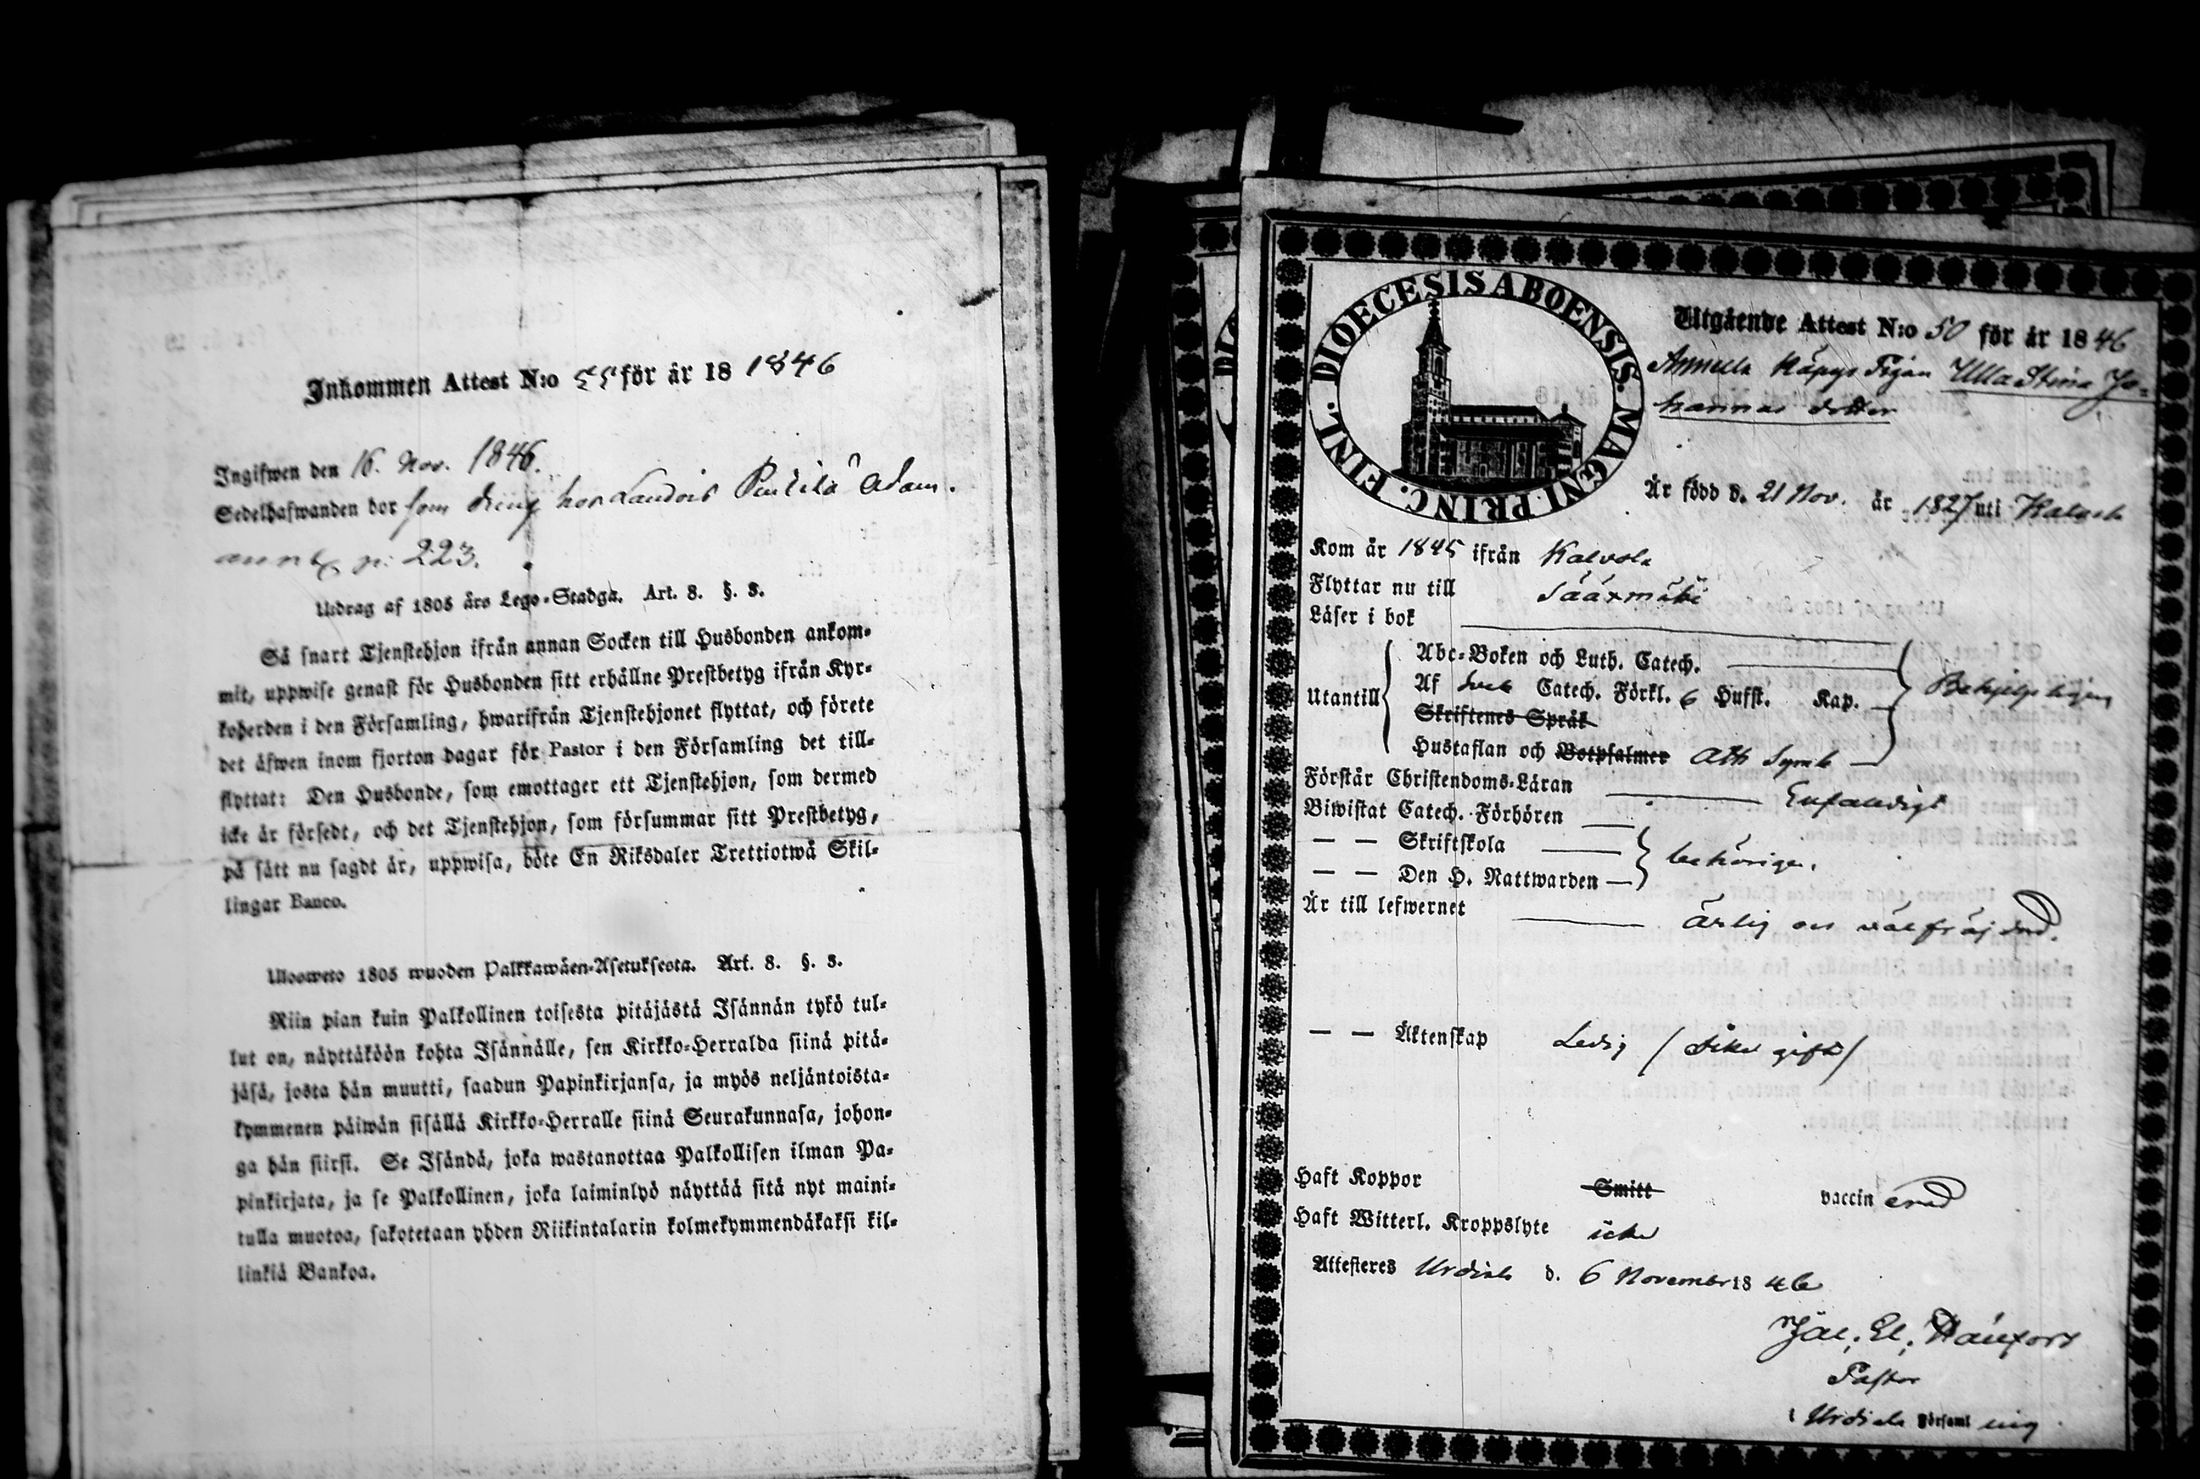 Inkommen Attest N:o 55 för år 18 1846
Ingifwen den 16. Nov. 1846.
Sedelhafwanden bor som dreng hos Landois Penttilä Adam.
p: 223.
Utdrag af 1805 års Lego-Stadga. Art. 8. §. 3.
Så snart Tjenstehjon ifrån annan Socken till Husbonden ankom-
mit, uppwise genast för Husbonden sitt erhållne Prestbetyg ifrån Kyr-
koherden i den Församling, hwarifrån Tjenstehjonet flyttat, och förete
det äfwen inom fjorton dagar för Pastor i den Församling det till-
flyttat: Den Husbonde, som emottager ett Tjenstehjon, som dermed
icke är försedt, och det Tjenstehjon, som försummar sitt Prestbetyg,
på sätt nu sagdt är, uppwisa, böte En Riksdaler Trettiotwå Skil-
lingar Banco.
Ulosweto 1805 wuoden Palkkawäen-Asetuksesta. Art. 8. §. 3.
Niin pian kuin Palkollinen toisesta pitäjästä Isännän tykö tul-
lut on, näyttäköön kohta Isännälle, sen Kirkko-Herralda siinä pitä-
jäsä, josta hän muutti, saadun Papinkirjansa, ja myös neljäntoista-
kymmenen päiwän sisällä Kirkko-Herralle siinä Seurakunnasa, johon-
ga hän siirsi. Se Isändä, joka wastanottaa Palkollisen ilman Pa-
pinkirjata, ja se Palkollinen, joka laiminlyö näyttää sitä nyt maini-
tulla muotoa, sakotetaan yhden Riikintalarin kolmekymmendäkaksi kil-
linkiä Bankoa.
DIOECESIS ABOENSIS. MAGNI PRINC. FINL.
Utgående Attest N:o 50 för år 1846
Annula Käpys Pigan Ulla Stina Jo-
hannes dotter
Är född d. 21 Nov. år 1827 uti Kalvola
Kom år 1845 ifrån Kalvola
Flyttar nu till Sääxmäki
Läser i bok
Abc-Boken och Luth. Catech.
Utantill Af Sveb Catech. Förkl. 6 Hufst. Kap. Behjelpligen
Skriftenes Språk
Hustaflan och Botpsalmer Ath Symb
Förstår Christendoms-Läran Enfaldigt
Biwistat Catech. Förhören
— — Skriftskola behörigen.
— — Den H. Nattwarden
Är till lefwernet ärlig och välfräjdad.
— — Äktenskap Ledig / icke gift /
Haft Koppor Smitt vaccin erad
Haft Witterl. Kroppslyte icke
Attesteres Urdiala d. 6 November 1846
Pastor
i Urdiala Församl ing